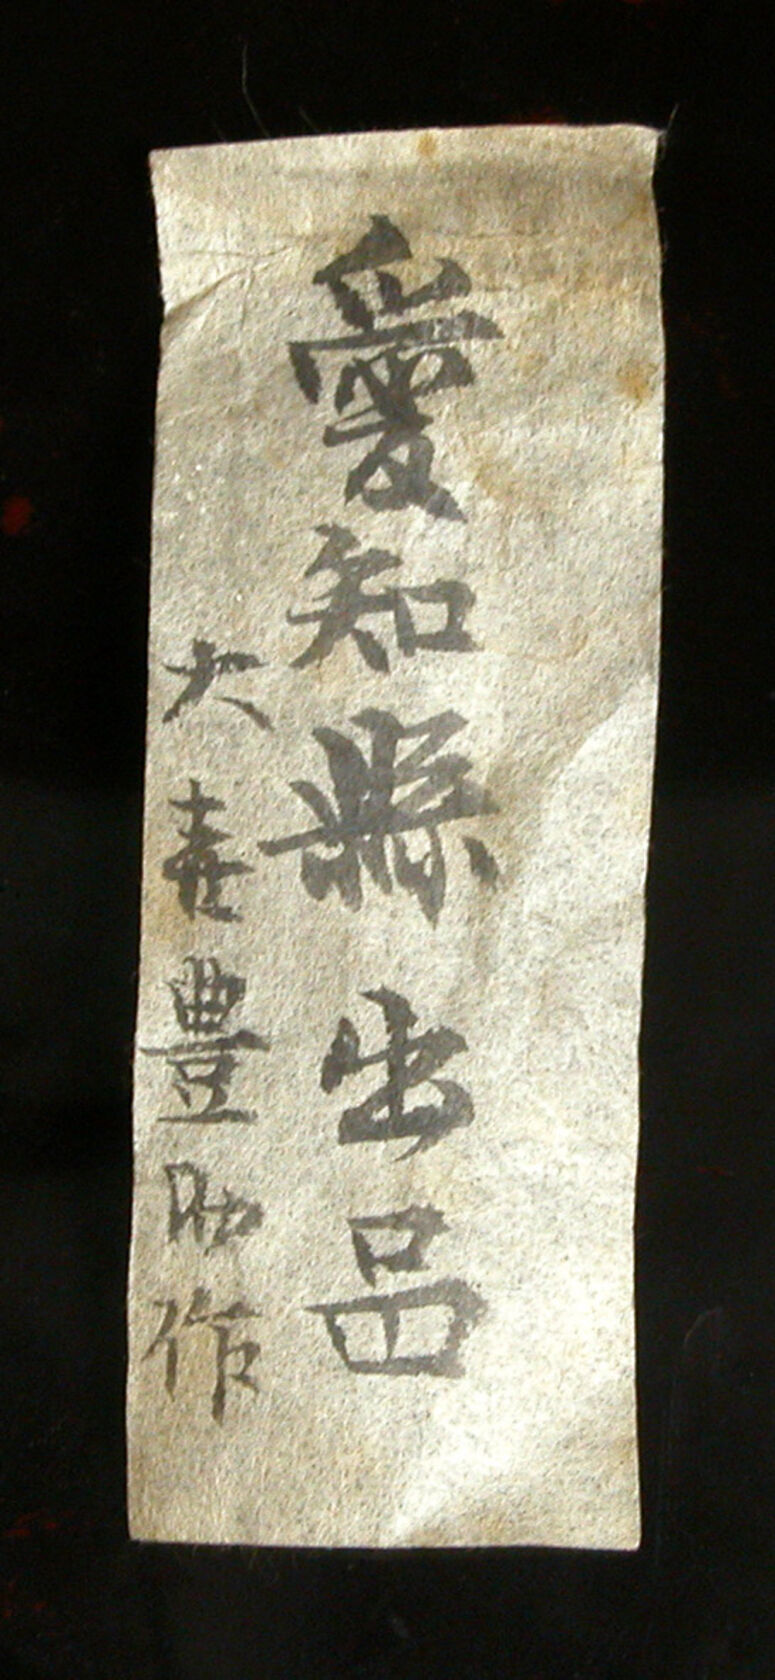 愛知縣出品
大喜豊助作